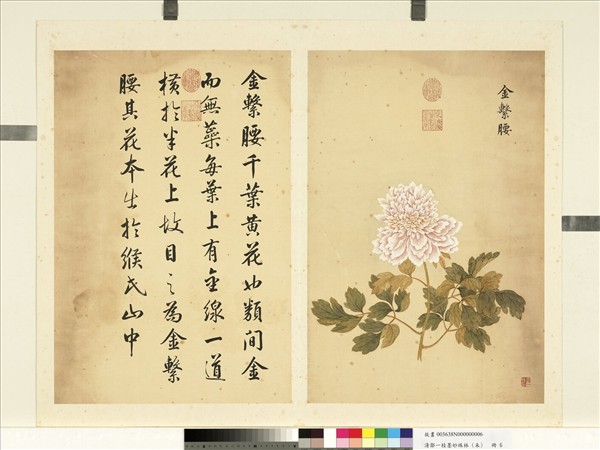 金繫腰
金繫腰千葉黃花也類間金
而無蘂每葉上有金線一道
橫於半花上故目之為金繫
腰其花本出於緱氏山中
故畫 003638N000000006
清鄒一桂墨妙珠林（未） 冊 6